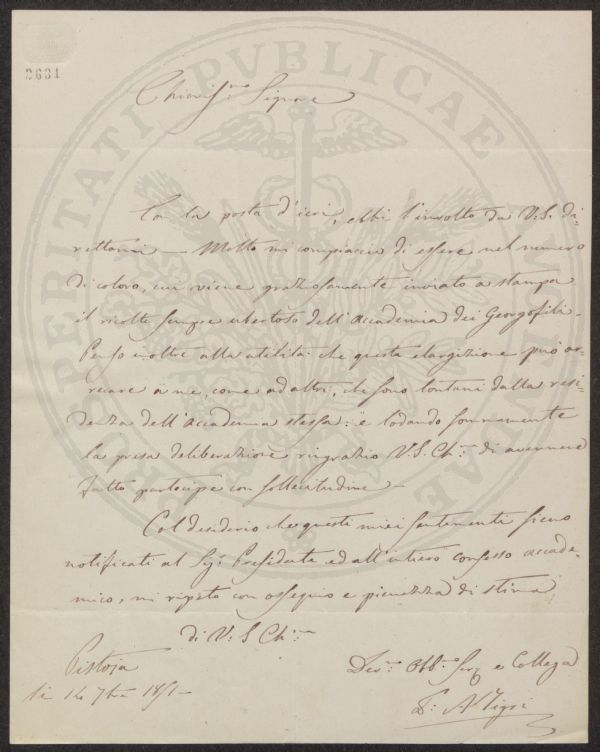 2631
PROSPERITATI PVBLICAE AVGENDAE
Chiariss:mo Signore
Con la posta d'ieri, ebbi l'involto da V:S. di-
rettomi — Molto mi compiaccio di essere nel numero
di coloro, cui viene graziosamente inviato a stampa
il ricolto sempre ubertoso dell'Accademia dei Georgofili.
Penso inoltre alla utilità che questa elargizione può ar-
recare a me, come ad altri, che sono lontani dalla resi-
denza dell'Accademia stessa: e lodando sommamente
la presa deliberazione ringrazio V.S. Ch:ma di avermene
fatto partecipe con sollecitudine —
Col desiderio che questi miei sentimenti sieno
notificati al Sig: Presidente ed all'intiero consesso accade-
mico, mi ripeto con ossequio e pienezza di stima
di V: S Ch:ma
Pistoja
li 14 7bre 1851 —
Dev:mo Obb:mo Ser: e Collega
D: A Tigri